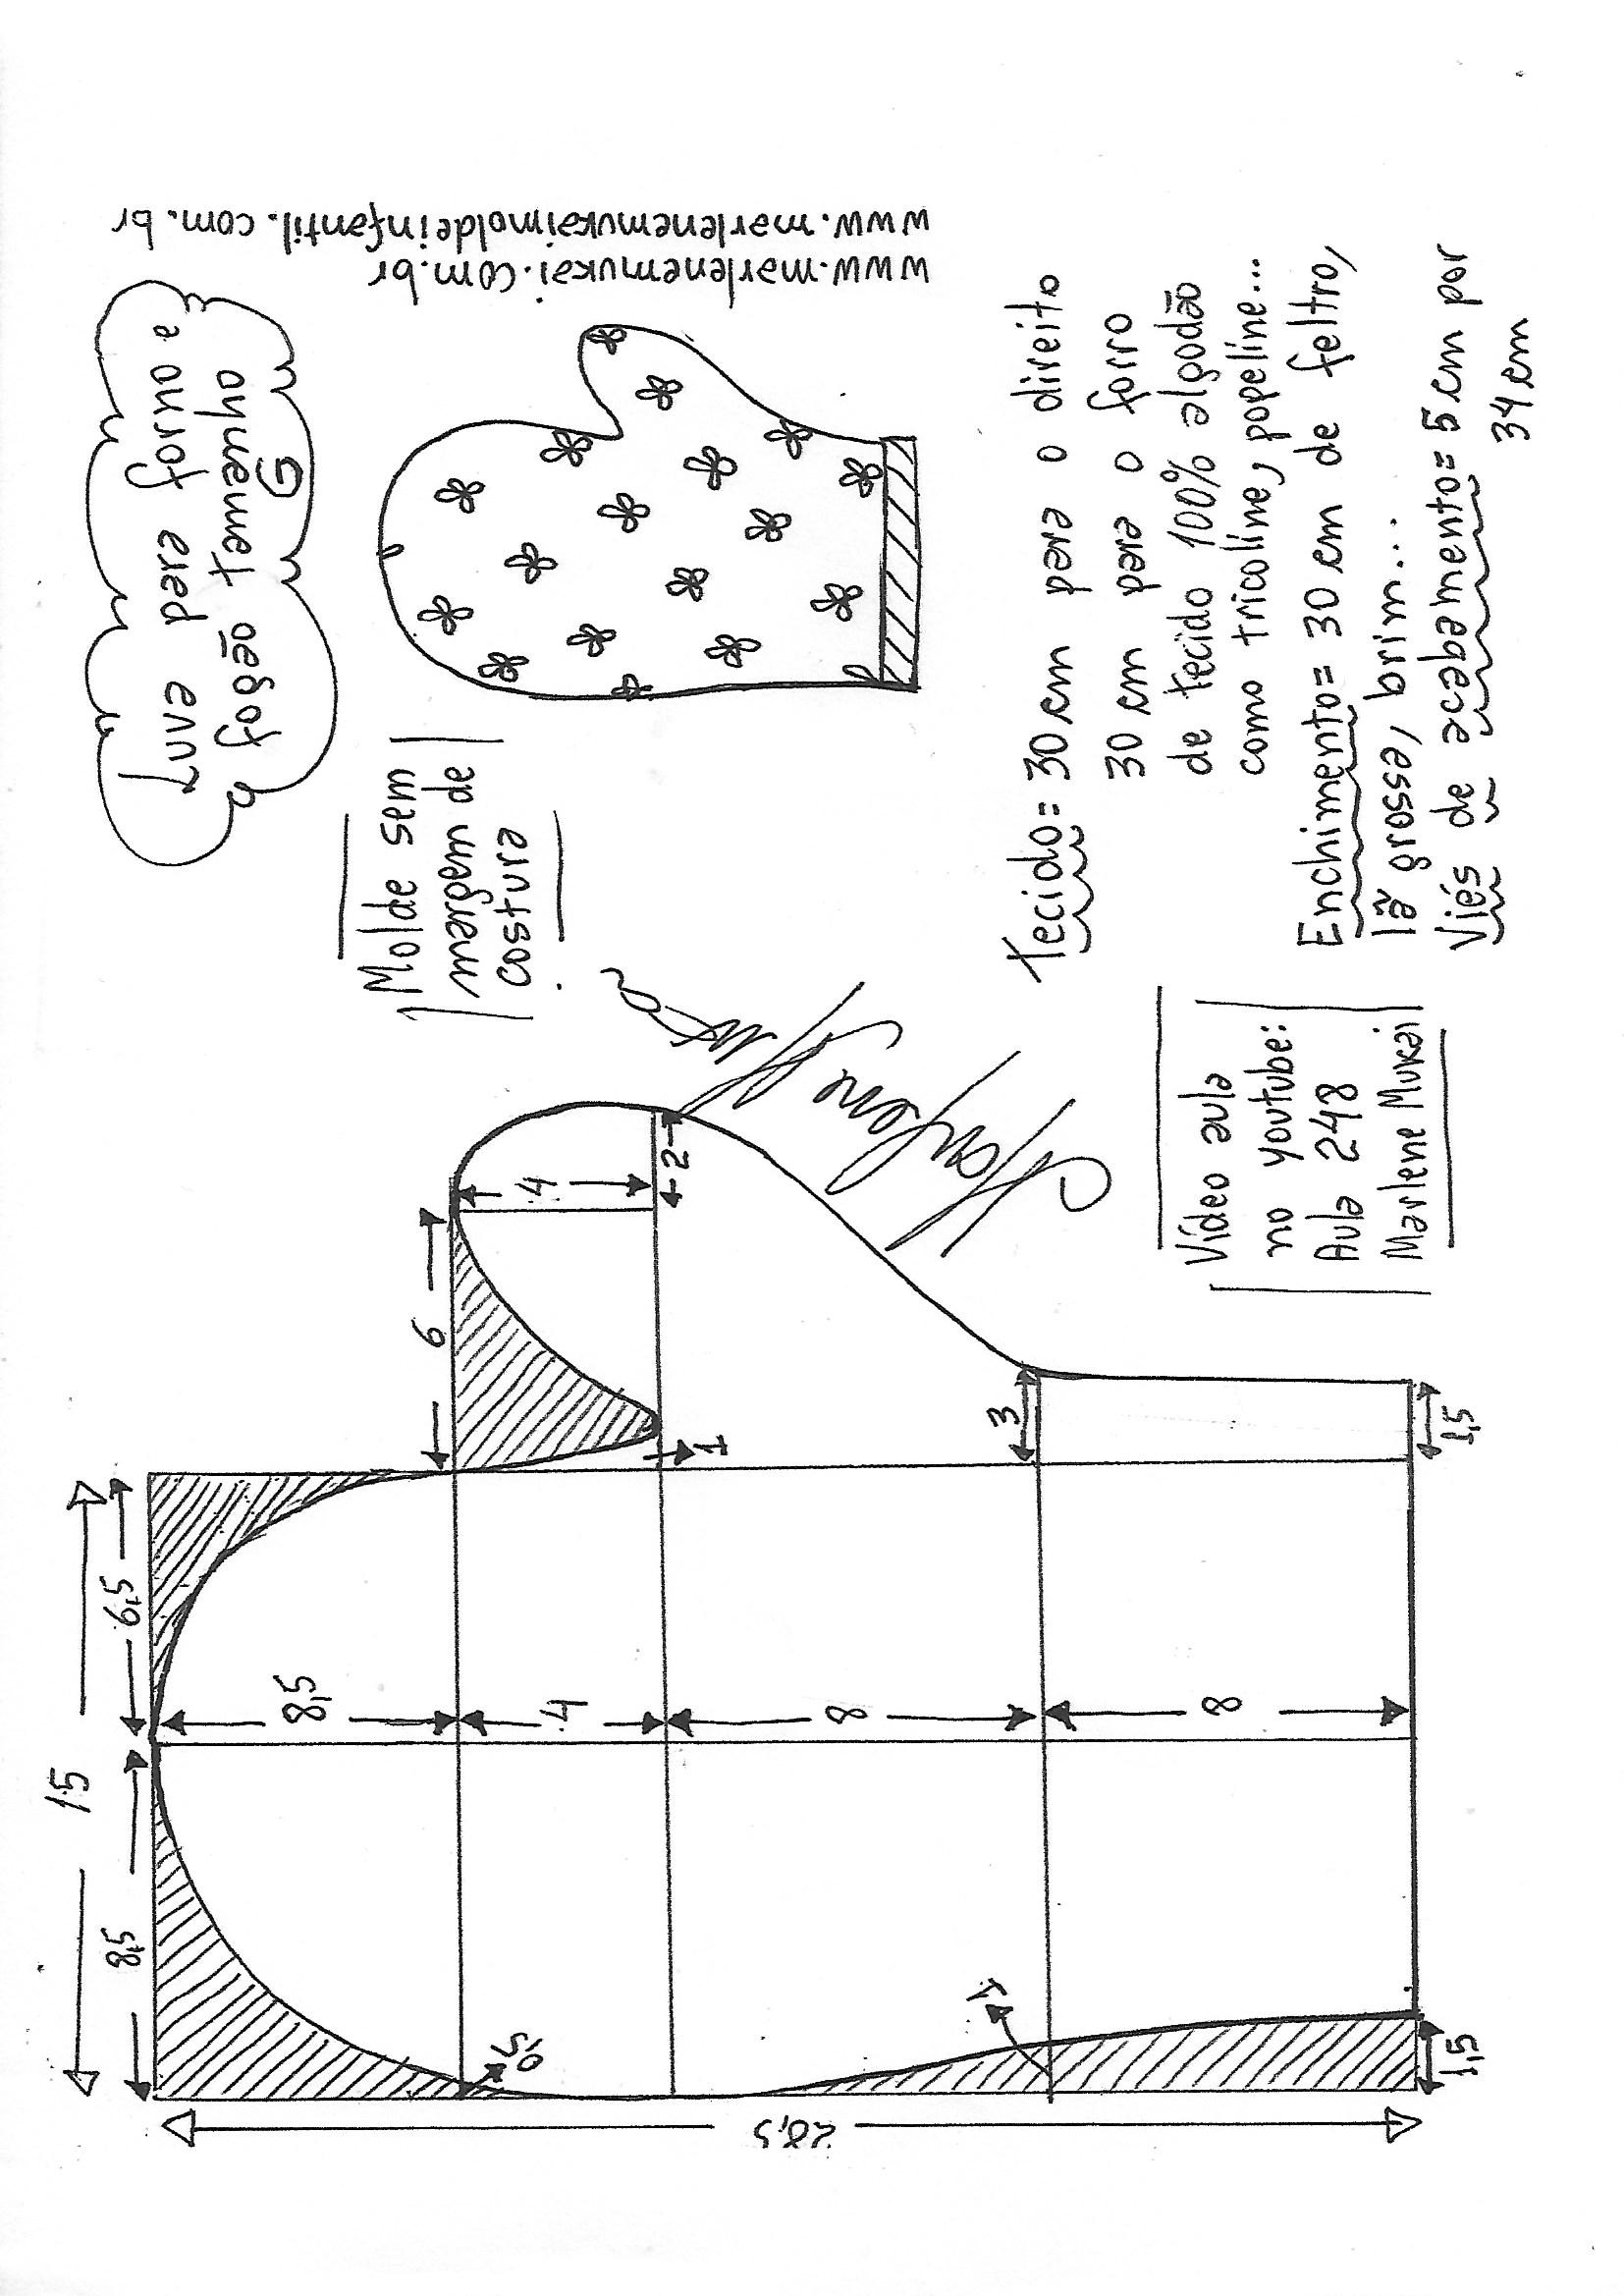 Luva para forno e
fogão tamanho
G
www.marlenemukai.com.br
www.marlenemukaimoldeinfantil.com.br
Molde sem
margem de
costura
Marlene Mukai
Tecido= 30 cm para o direito
30 cm para o forro
de tecido 100% algodão
como tricoline, popeline...
Enchimento= 30 cm de feltro,
lã grossa, brim...
Viés de acabamento= 5 cm por
34 cm
Vídeo aula
no youtube:
Aula 248
Marlene Mukai
15
8,5
6,5
8,5
4
8
8
28,5
6
4
2
1
3
1,5
0,5
1
1,5